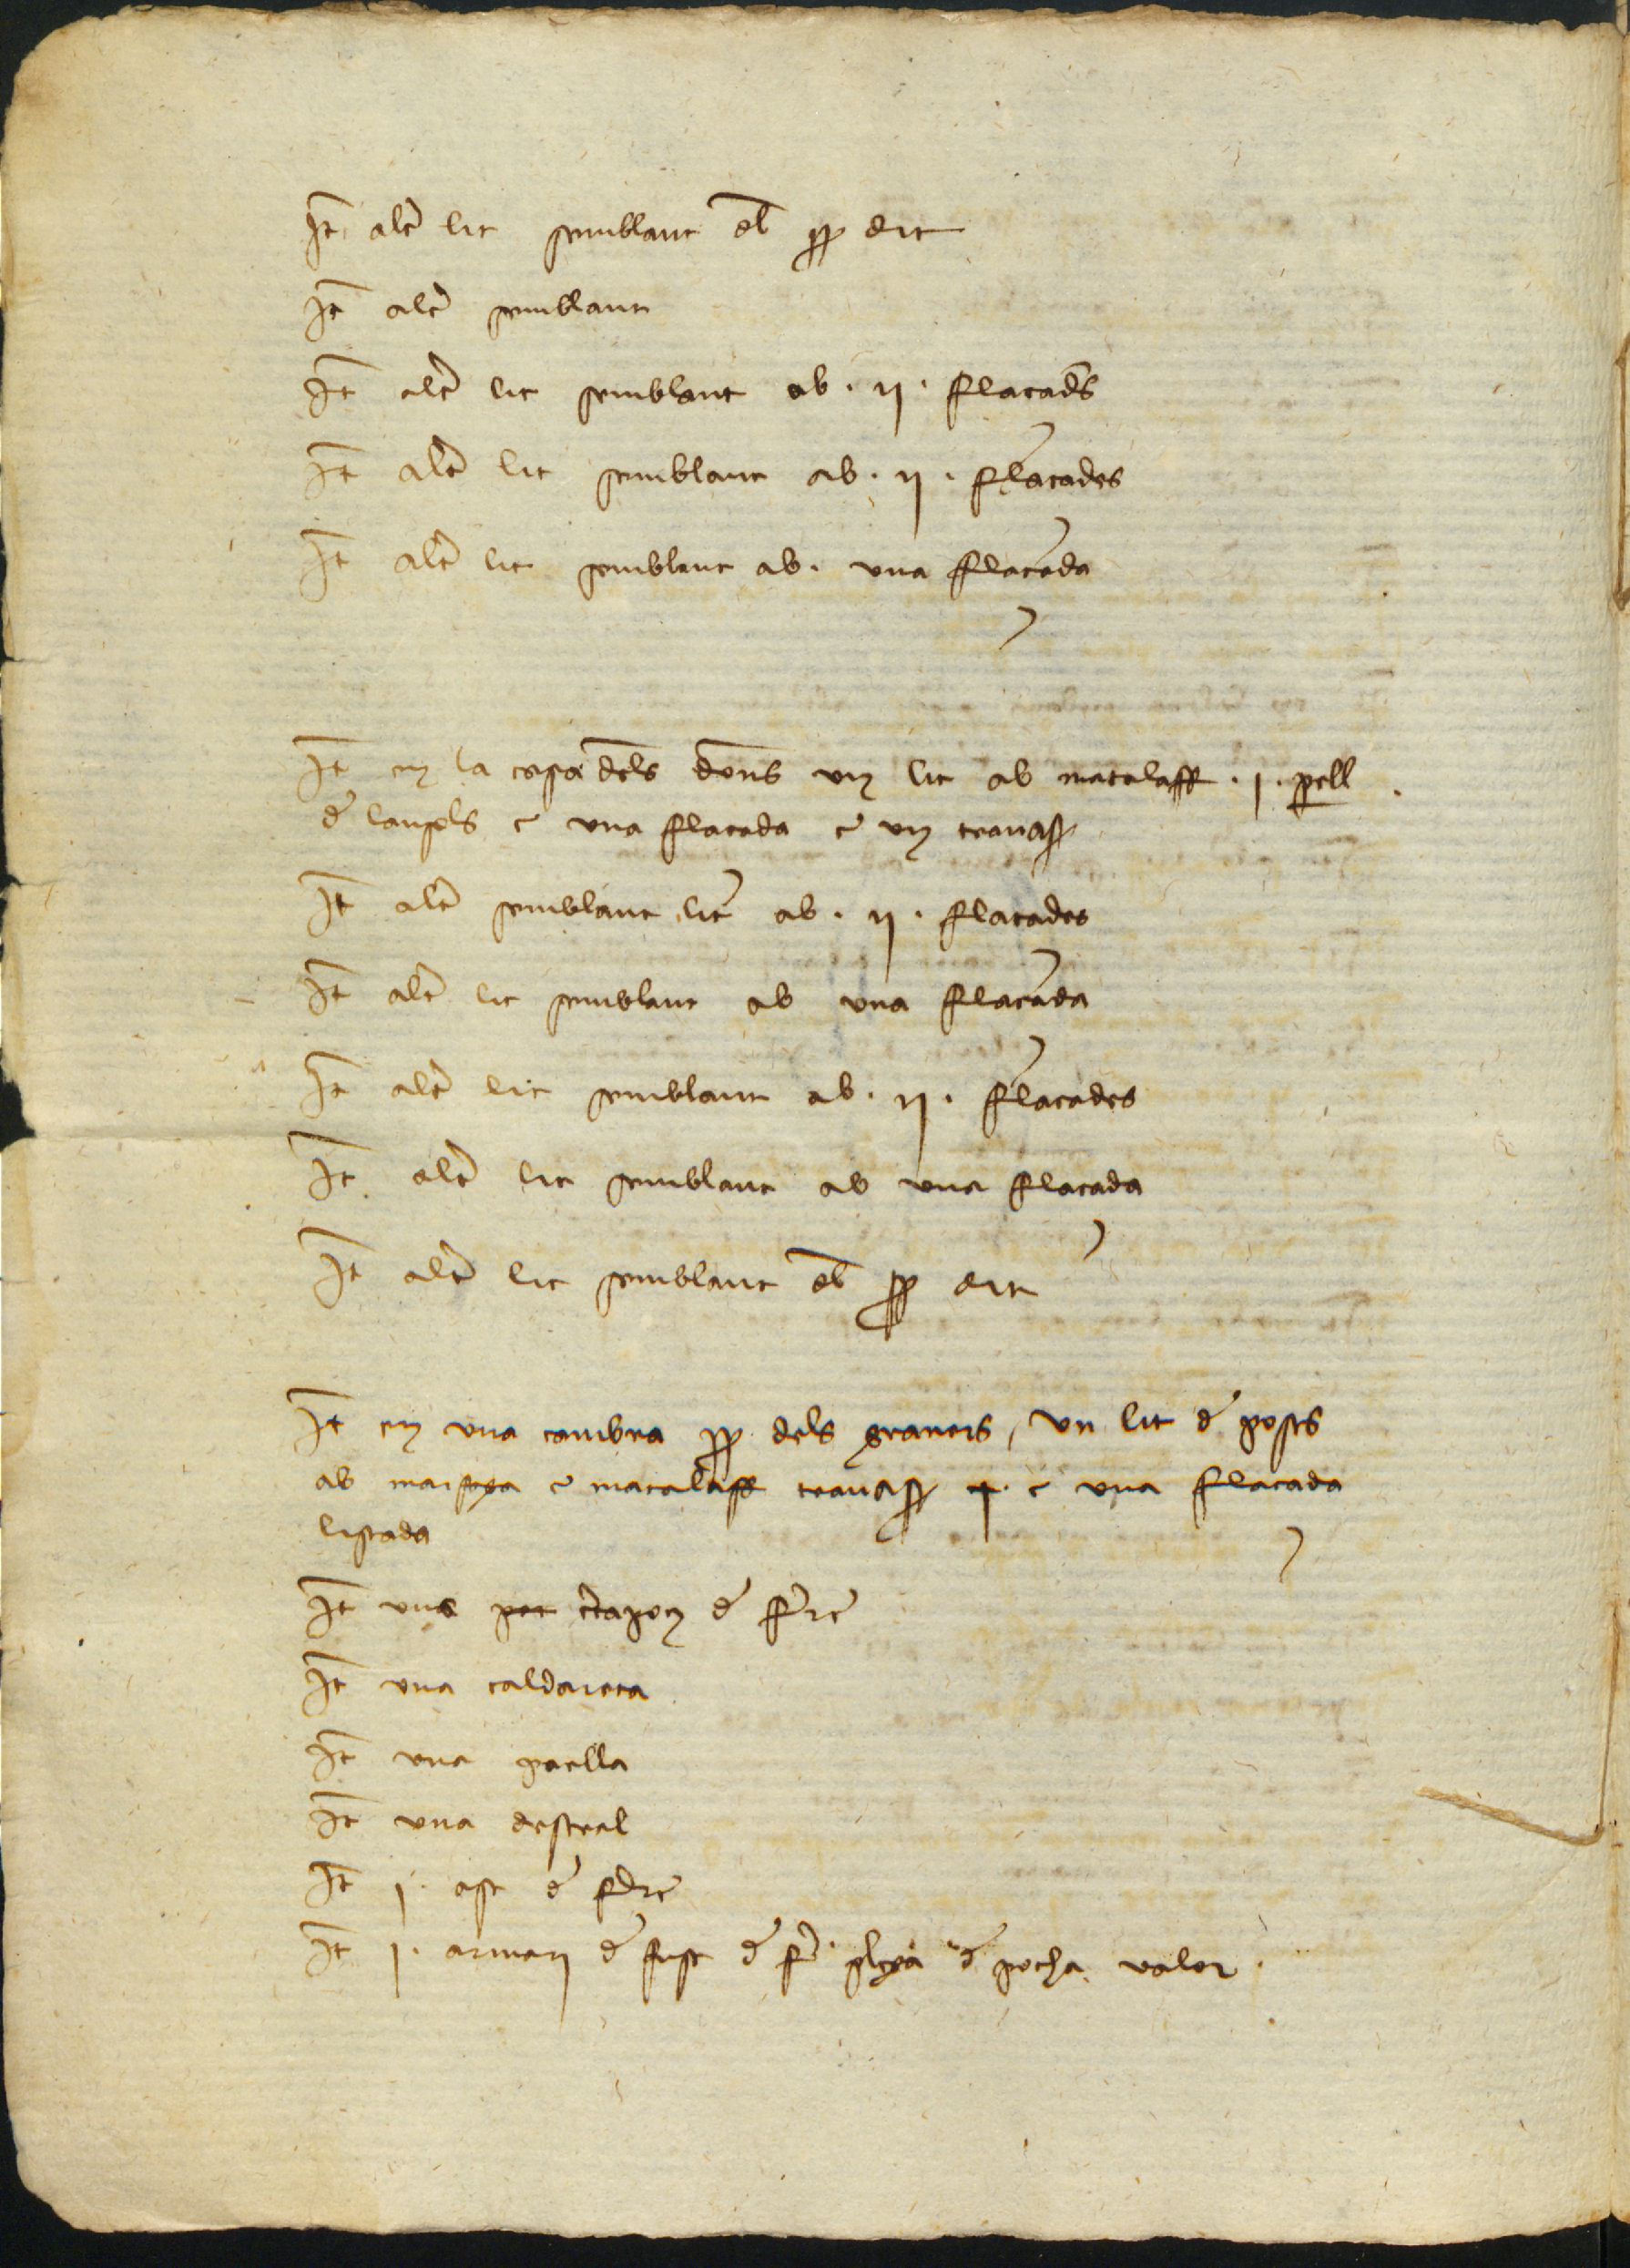 It altre lit semblant del prop dit
It altre semblant
It altre lit semblant ab .ii. flaçades
It altre lit semblant ab .ii. flaçades
It altre lit semblant ab . una flaçada
It en la casa dels dons un lit ab matalaff .i. parell
de lançols e una flaçada e un travesser
It altre semblant lit ab .ii. flaçades
It altre lit semblant ab una flaçada
It altre lit semblant ab .ii. flaçades
It altre lit semblant ab una flaçada
It altre lit semblant del prop dit
It en una cambra prop dels graners, un lit de posts
ab marfega e matalaff travesser e una flaçada
listada
It uns de ferre
It una caldareta
It una paella
It una destral
It i. ast de ferre
It i. armari de fust de pocha valor.